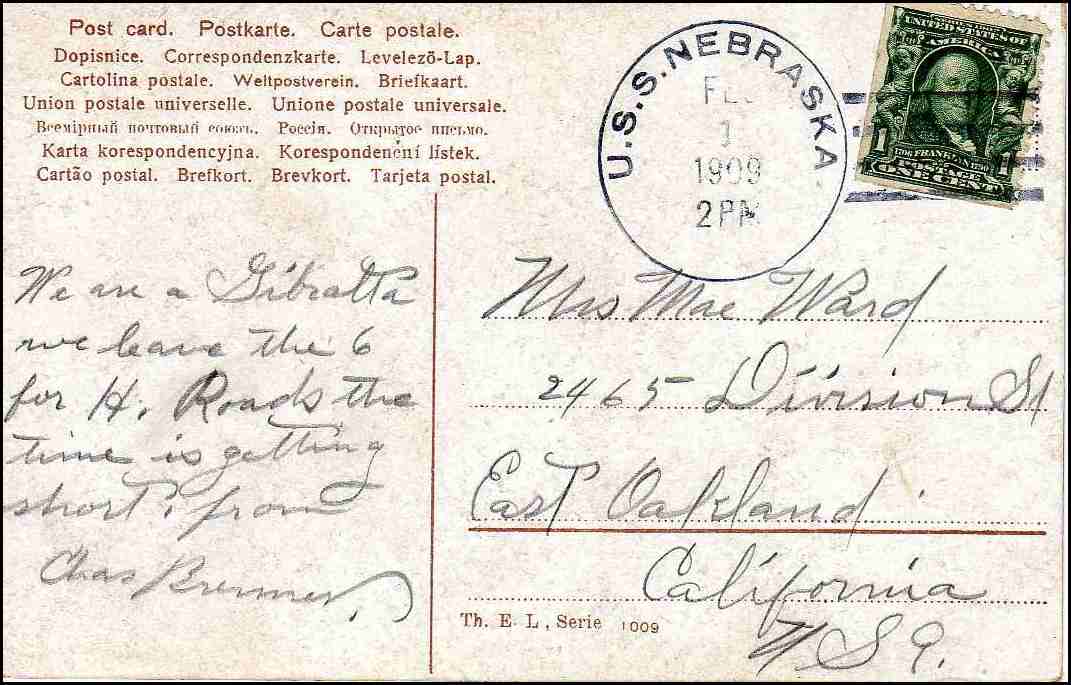 Post card. Postkarte. Carte postale.
Dopisnice. Correspondenzkarte. Levelezõ-Lap.
Cartolina postale. Weltpostverein. Briefkaart.
Union postale universelle. Unione postale universale.
Всемірный почтовый союзъ. Россія. Открытое письмо.
Karta korespondencyjna. Korespondenční lístek.
Cartão postal. Brefkort. Brevkort. Tarjeta postal.
U.S.S. NEBRASKA
FEB
1
1909
2PM
UNITED STATES OF
AMERICA
1 1706 FRANKLIN 1790 1
POSTAGE
ONE CENT
We are a Gibralta
we leave the 6
for H. Roads the
time is getting
short. from
Chas Bremer.
Mrs Mae Ward
2465 Division St
East Oakland
California
U S A.
Th. E. L., Serie 1009